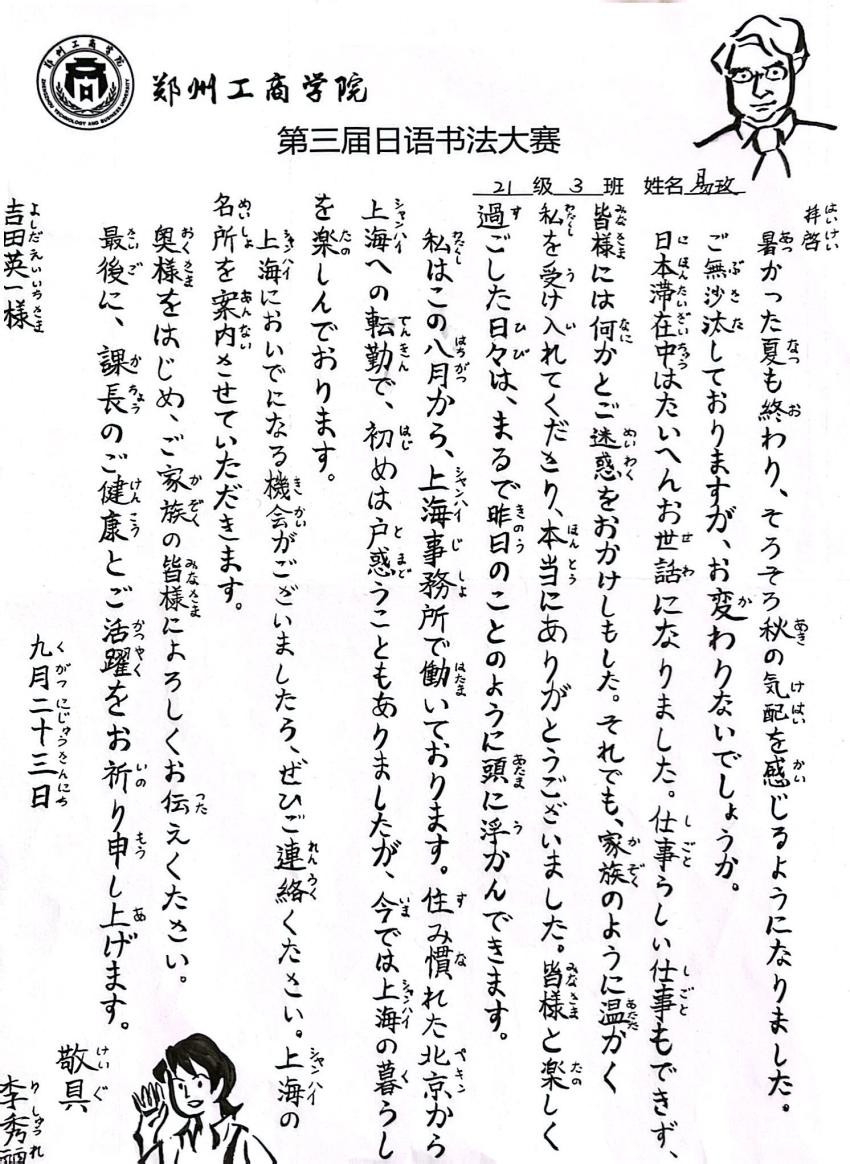 郑州工商学院
ZHENGZHOU TECHNOLOGY AND BUSINESS UNIVERSITY
郑州工商学院
第三届日语书法大赛
21 级 3 班 姓名 易玫
拝啓
暑かった夏も終わり、そろそろ秋の気配を感じるようになりました。
ご無沙汰しておりますが、お変わりないでしょうか。
日本滞在中はたいへんお世話になりました。仕事らしい仕事もできず、
皆様には何かとご迷惑をおかけしもした。それでも、家族のように温かく
私を受け入れてくださり、本当にありがとうございました。皆様と楽しく
過ごした日々は、まるで昨日のことのように頭に浮かんできます。
私はこの八月から、上海事務所で働いております。住み慣れた北京から
上海への転勤で、初めは戸惑うこともありましたが、今では上海の暮らし
を楽しんでおります。
上海においでになる機会がございましたら、ぜひご連絡ください。上海の
名所を案内させていただきます。
奥様をはじめ、ご家族の皆様によろしくお伝えください。
最後に、課長のご健康とご活躍をお祈り申し上げます。
敬具
九月二十三日
李秀麗
吉田英一様